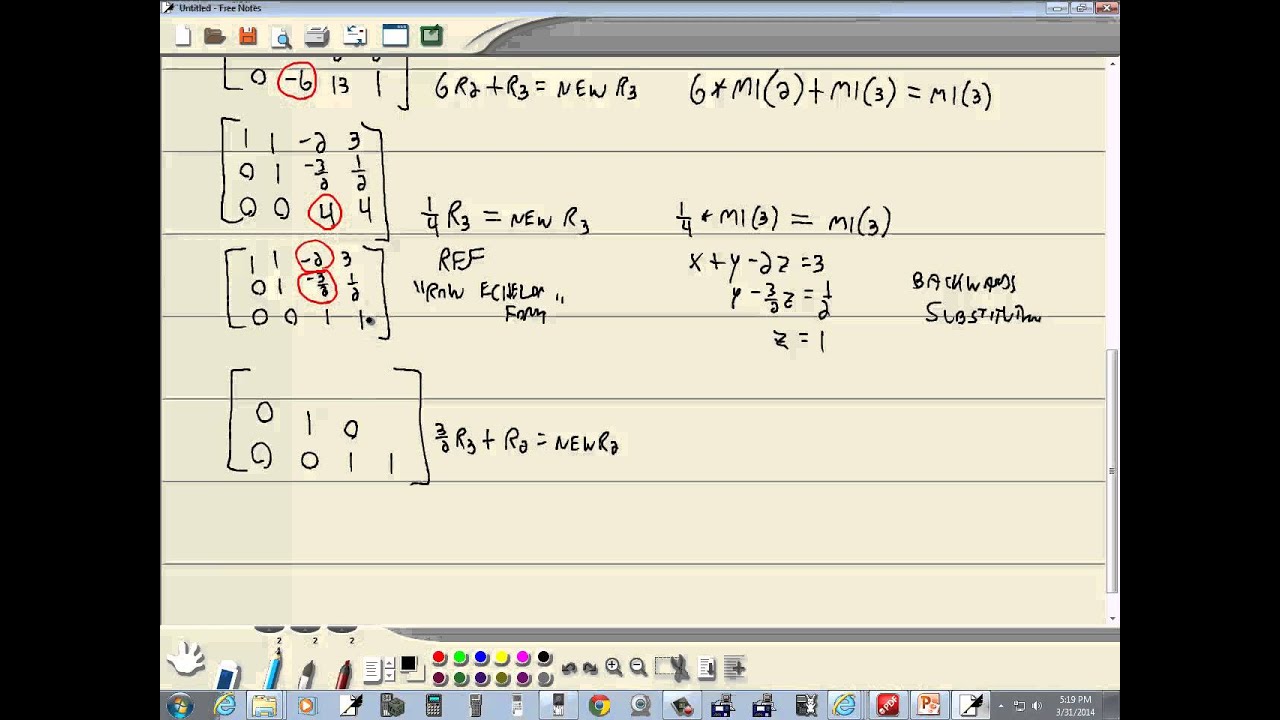 Untitled - Free Notes
0 -6 13 1 6R2 + R3 = NEW R3 6*M1(2)+M1(3) = M1(3)
1 1 -2 3
0 1 -3/2 1/2
0 0 4 4 1/4 R3 = NEW R3 1/4 * M1(3) = M1(3)
1 1 -2 3 REF x + y - 2z = 3
0 1 -3/2 1/2 "ROW ECHELON FORM" y - 3/2 z = 1/2 BACKWARDS SUBSTITUTION
0 0 1 1 z = 1
0 1 0 3/2 R3 + R2 = NEW R2
0 0 1 1
2 2 2
5:19 PM
3/31/2014